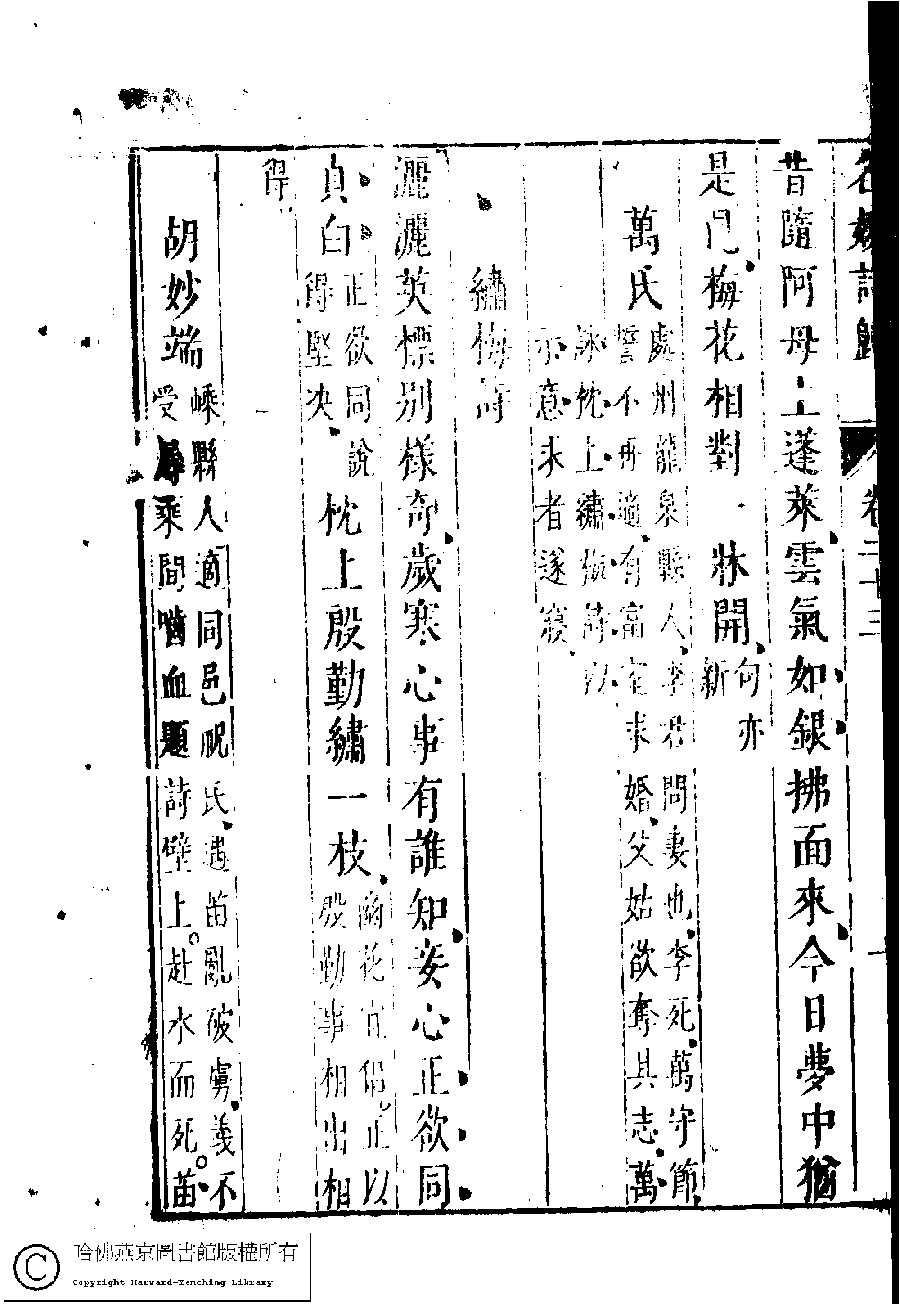 名媛詩歸 卷二十三
昔隨阿母上蓬萊雲氣如銀拂面來今日夢中猶
是見梅花相對一牀開句亦新
萬氏處州龍泉縣人李君問妻也李死萬守節誓不再適有富室求婚父姑欲奪其志萬
詠枕上繡梅詩以示意求者遂寢
繡梅詩
灑灑英標別樣奇歲寒心事有誰知妾心正欲同
真白正欲同說得堅決枕上殷勤繡一枝殷勤事相出相
得
胡妙端嵊縣人適同邑祝氏遇苗亂破虜義不受辱乘間嚙血題詩壁上赴水而死苗
哈佛燕京圖書館版權所有
Copyright Harvard-Yenching Library